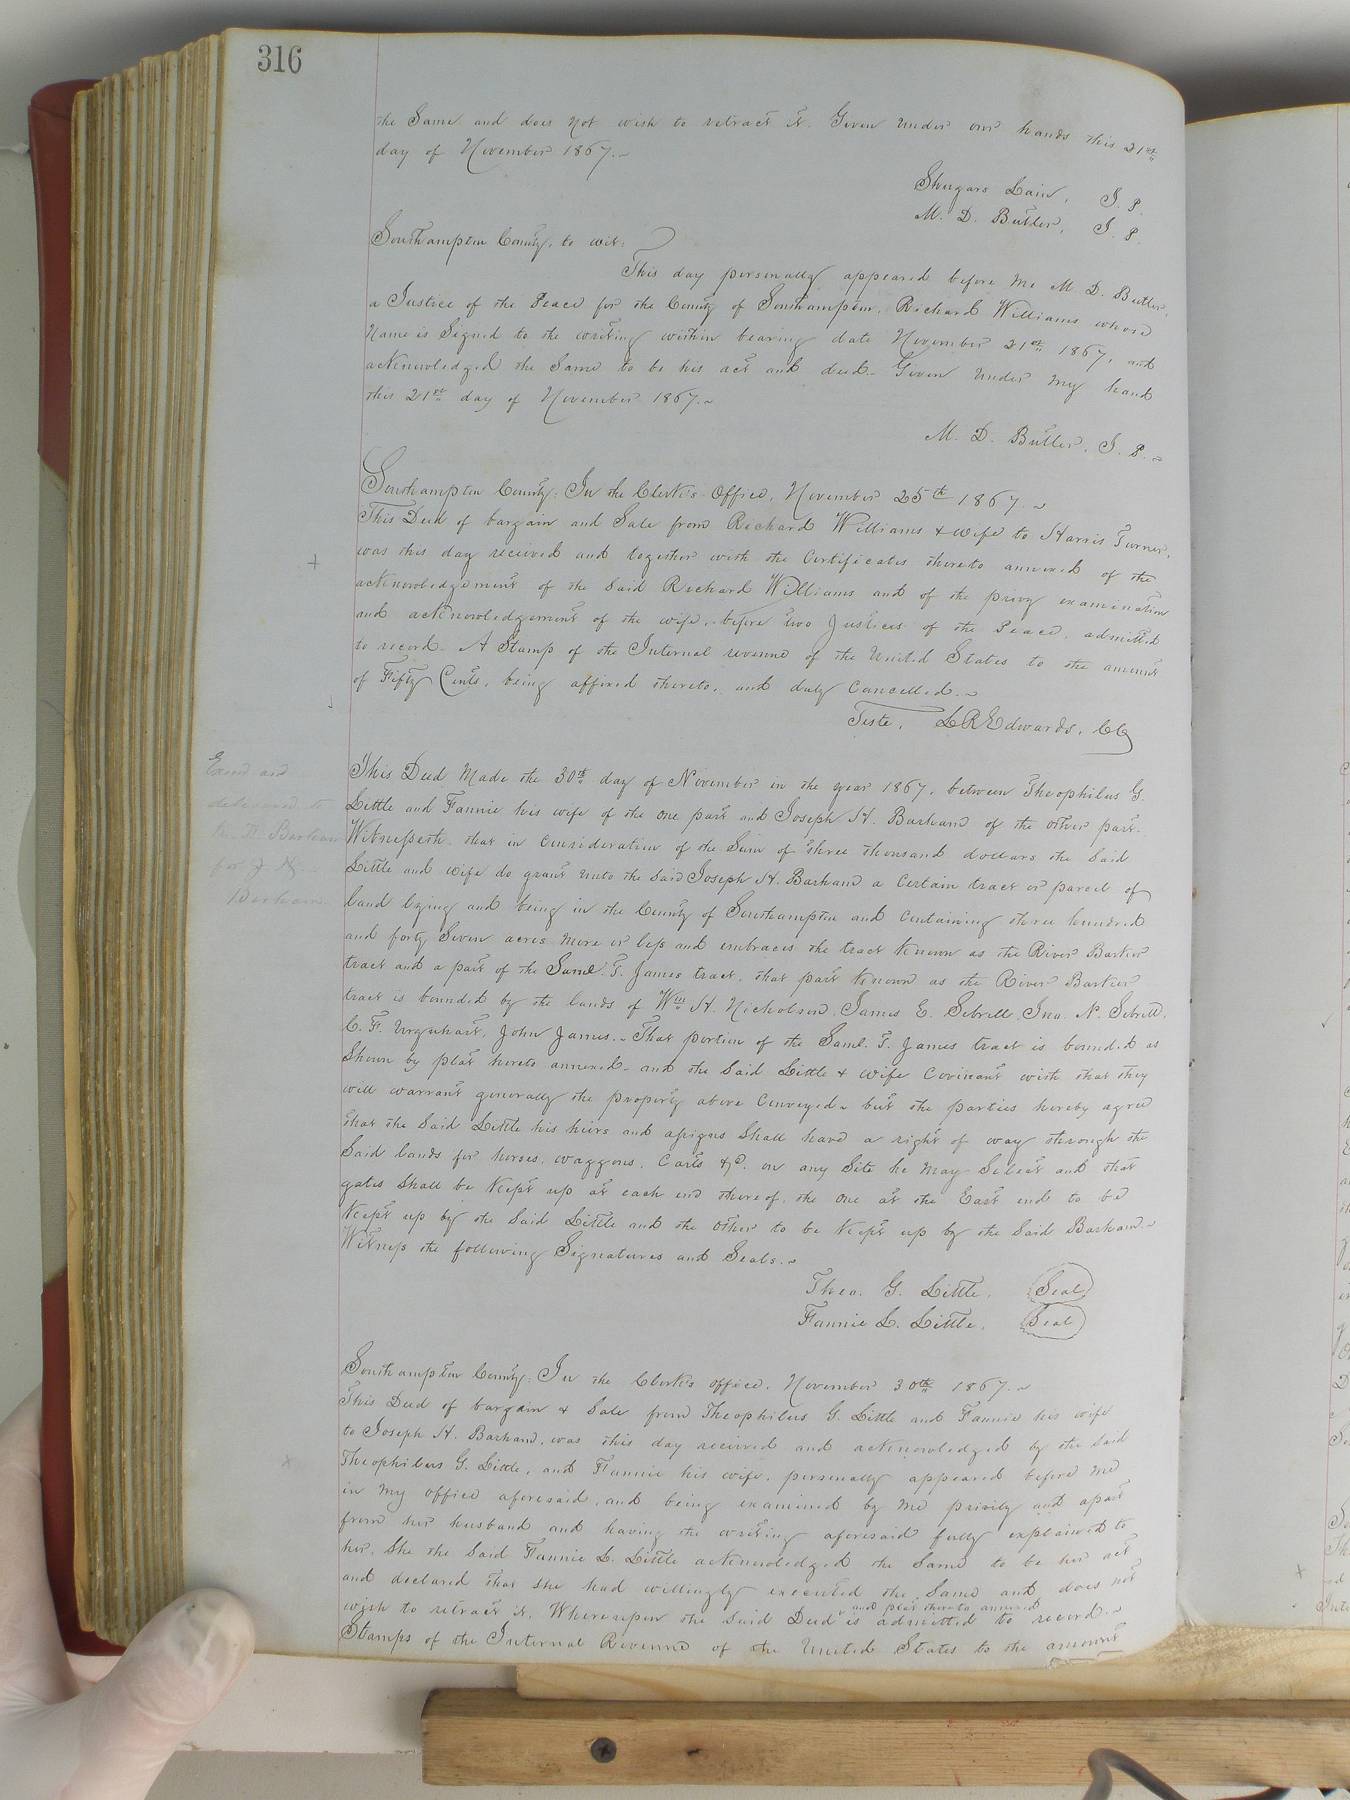 316
the Same and does not wish to retract it. Given under our hands this 21st
day of November 1867.~
Shugars Lain, J. P.
M. D. Butler, J. P.
Southampton County, to wit:
This day personally appeared before me M. D. Butler,
a Justice of the Peace for the County of Southampton, Richard Williams whose
Name is Signed to the writing within bearing date November 21st 1867, and
acknowledged the Same to be his act and deed. Given under my hand
this 21st day of November 1867.~
M. D. Butler, J. P.~
Southampton County: In the Clerk's Office, November 25th 1867.~
This Deed of bargain and Sale from Richard Williams & wife to Harris Turner,
was this day received and together with the Certificates thereto annexed of the
acknowledgement of the Said Richard Williams and of the privy examination
and acknowledgement of the wife, before two Justices of the Peace, admitted
to record. A Stamp of the Internal revenue of the United States to the amount
of Fifty Cents, being affixed thereto, and duly Cancelled.~
Teste, L R Edwards, CC
Exmd and
delivered to
Barham
for J. H.
Barham.
This Deed Made the 30th day of November in the year 1867, between Theophilus G.
Little and Fannie his wife of the one part and Joseph H. Barham of the other part.
Witnesseth, that in Consideration of the Sum of three thousand dollars the Said
Little and wife do grant unto the Said Joseph H. Barham a Certain tract or parcel of
land lying and being in the County of Southampton and Containing three hundred
and forty Seven acres more or less and embraces the tract Known as the River Barker
tract and a part of the Saml. T. James tract, that part Known as the River Barker
tract is bounded by the lands of Wm H. Nicholson, James E. Sebrell, Jno. N. Sebrell,
C. F. Urquhart, John James.~ That portion of the Saml. T. James tract is bounded as
Shown by plat hereto annexed. and the Said Little & wife Covenant with that they
will warrant generally the property above Conveyed~ but the parties hereby agree
that the Said Little his heirs and assigns Shall have a right of way through the
Said lands for horses, waggons, Carts &c. on any Site he may Select and that
gates Shall be Kept up at each end thereof, the one at the East end to be
Kept up by the Said Little and the other to be Kept up by the Said Barham.~
Witness the following Signatures and Seals.~
Theo. G. Little. Seal
Fannie L. Little. Seal
Southampton County: In the Clerk's office, November 30th 1867.~
This Deed of bargain & Sale from Theophilus G. Little and Fannie his wife
to Joseph H. Barham, was this day received and acknowledged by the Said
Theophilus G. Little, and Fannie his wife, personally appeared before me
in my office aforesaid, and being examined by me privily and apart
from her husband and having the writing aforesaid fully explained to
her, She the Said Fannie L. Little acknowledged the Same to be her act
and declared that she had willingly executed the Same and does not
and plat thereto annexed
wish to retract it. Whereupon the Said Deed is admitted to record.~
Stamps of the Internal Revenue of the United States to the amount